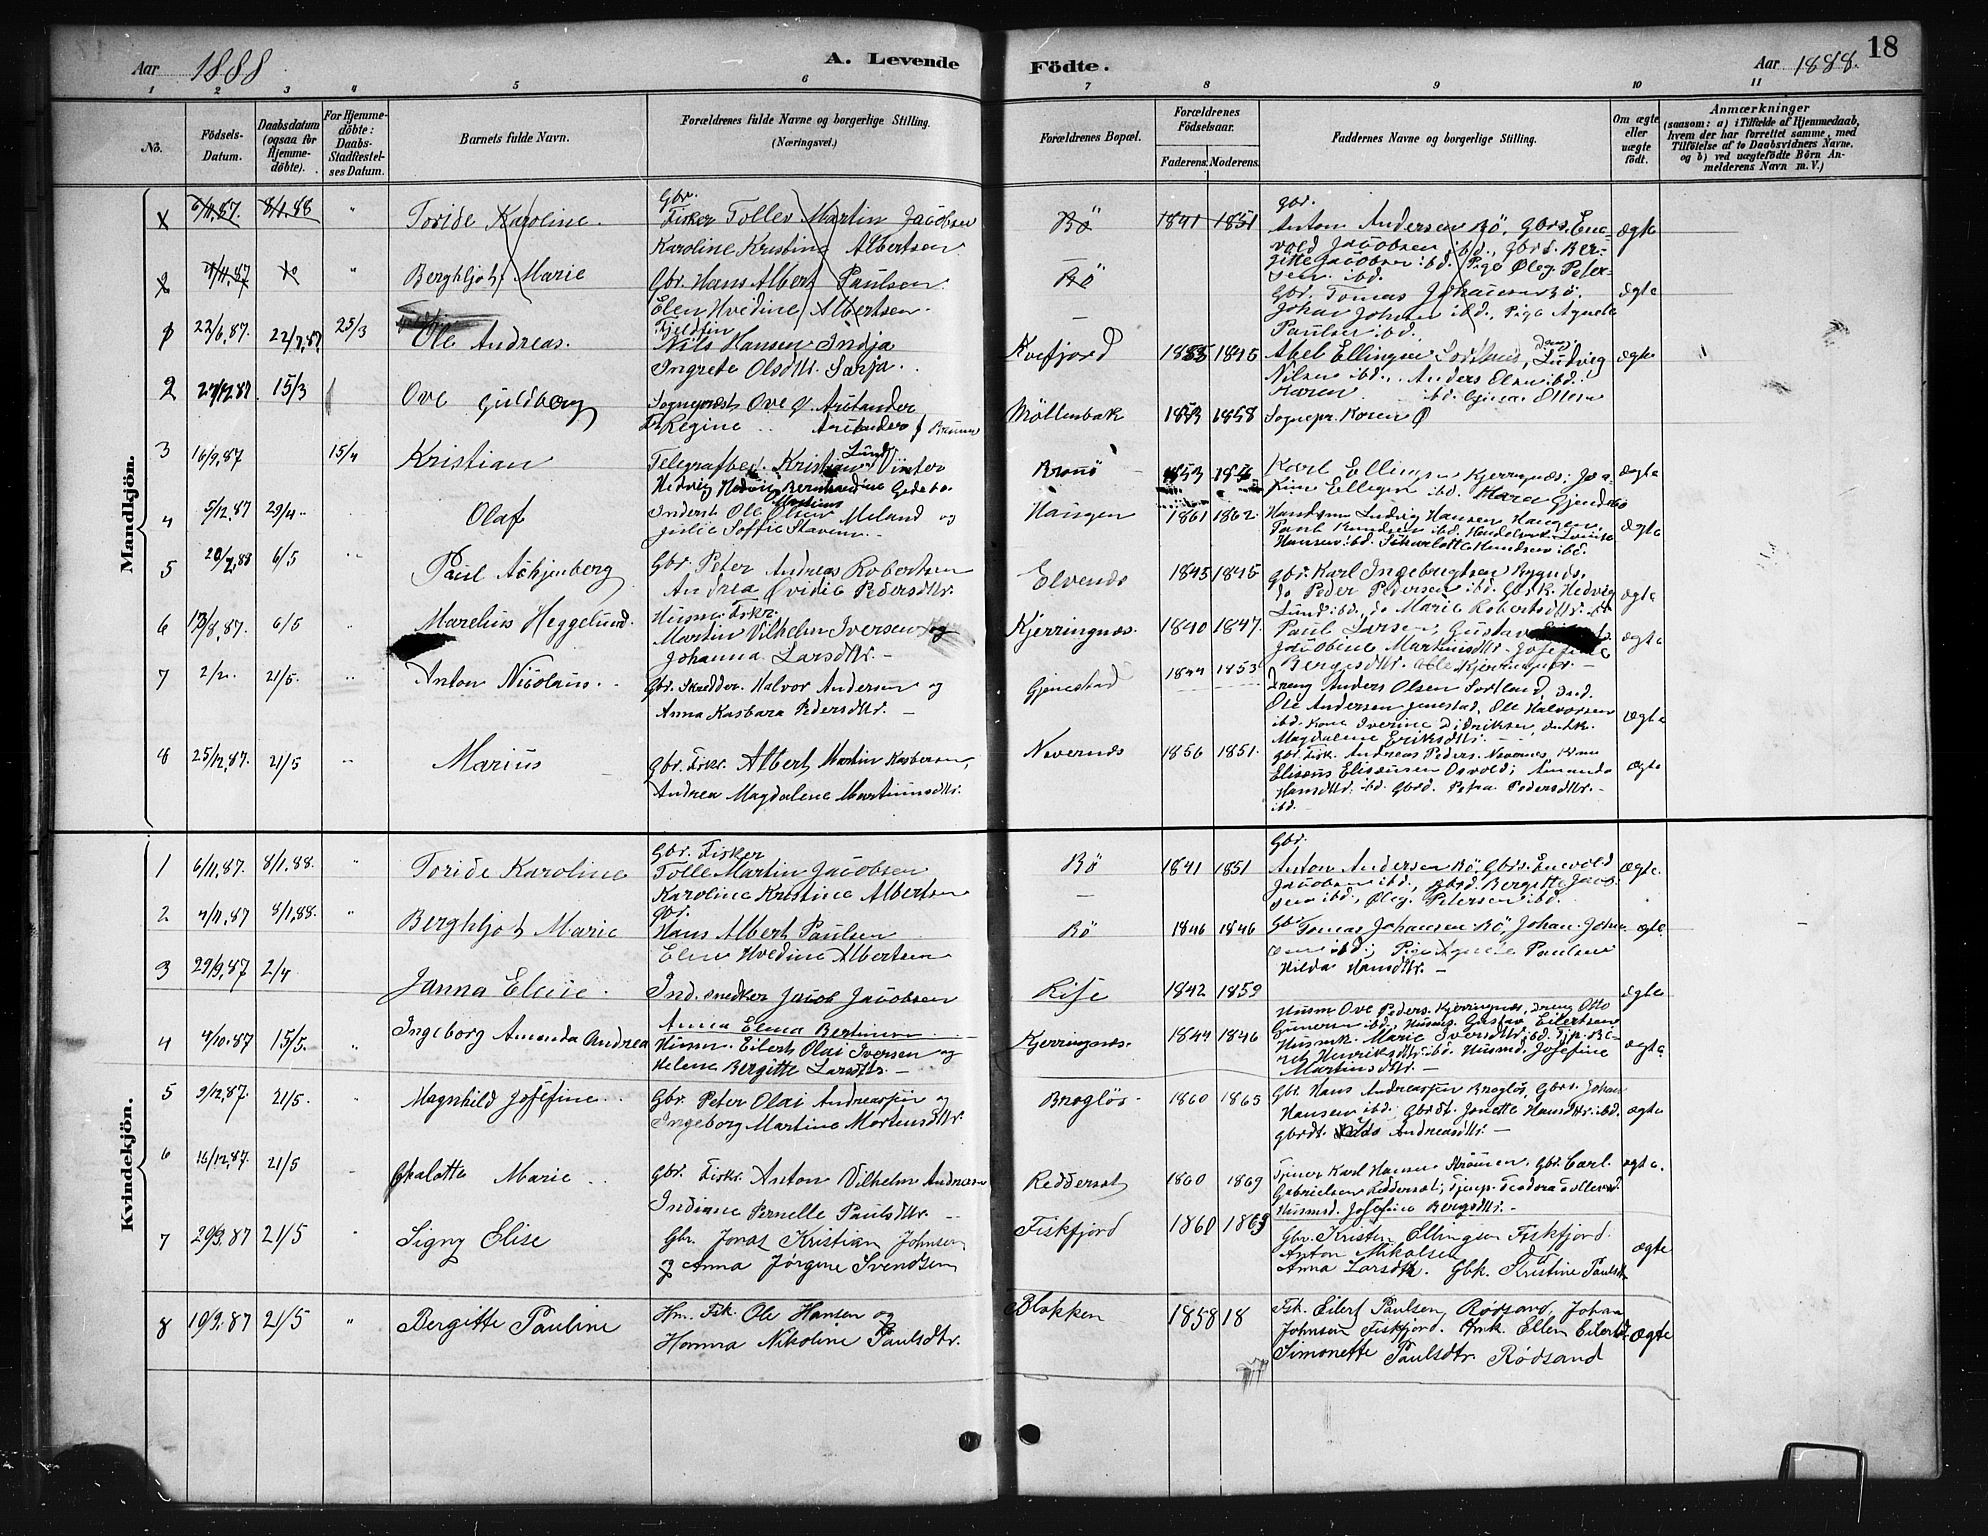 Aar 1888
A. Levende
Födte.
Aar 1888.
18
1 2 3 4 5 6 7 8 9 10 11
No.
Födsels-
Datum.
Daabsdatum
(ogsaa for
Hjemme-
döbte).
For Hjemme-
döbte:
Daabs-
Stadfæstel-
ses Datum.
Barnets fulde Navn.
Forældrenes fulde Navne og borgerlige Stilling.
(Næringsvei.)
Forældrenes Bopæl.
Forældrenes
Födselsaar.
Faderens. Moderens.
Faddernes Navne og borgerlige Stilling.
Om ægte
eller
uægte
födt.
Anmærkninger
(saasom: a) i Tilfælde af Hjemmedaab,
hvem der har forrettet samme, med
Tilföielse af to Daabsvidners Navne.
og b) ved uægtefödte Börn An-
melderens Navn m. V.)
Mandkjön.
6/11,87. 8/1,88 " Toride Karoline.
Gbr.
Fisker Tollev Martin Jacobsen
Karoline Kristine Albertsen
Bö 1841 1851
gbr.
Anton Andersen Bö, Gbrs. Ene-
vold Jacobsen ibd., Gbrd. Ber-
gitte Jacobsen ibd. Pige Oleg. Peter-
sen ibd.
ægte
4/11,87 " Berghljot Marie
Gbr. Hans Albert Paulsen
Elen Hvedine Albertsen.
Bö
Gbr. Tomas Johansen Bö,
Johan Johnsen ibd., Pige Agnete
Paulsen ibd.
ægte
1 22/6,87. 22/7,87. 25/3 Ole Andreas.
Fjeldfin
Nils Hansen Indja
Ingrete Olsdtr. Sarja.
Kvefjord 1855 1845
Abel Ellingsen Sortland, Dreng Ludvig
Nilsen ibd., Anders Olsen ibd.
Karen ibd. Ottesen
ægte
2 15/3 Ove Guldberg
Sognepræst Ove
Regine
1853 1858 Sognepr. Koren
3 16/9,87 15/4 Kristian
Telegrafbest. Kristian Lund Vinter
Hedvig Bernhardine
Bronö 1853
Karl Ellingsen Kjerringnæs, Joa-
kim Ellingsen ibd.
ægte
4 5/12,87 29/4 Olaf
Inderst Ole Olsen Meland og
Haugen 1861 1862.
Ludvig Hansen, Haugen,
Paul Knudsen ibd.
Hansen ibd. Scharlotte Knudsen ibd.
ægte
5 20/2,88 6/5 " Paul Achjenberg
Gbr. Peter Andreas Robertsen
Andrea Ovidie Pedersdtr.
Elvenes 1845 1845
Gbr. Karl Ingebrigtsen Rygnes.
do Peder Pedersen ibd. Gbrk. Hedvig
Lund ibd. do Marie Robertsdtr. ibd
ægte
6 13/8,87. 6/5 " Marelius Heggelund.
Husm. Fskr.
Martin Vilhelm Iversen og
Johanna Larsdtr. —
Kjerringnæs. 1840 1847.
Paul Larsen, Gustav
Jacobine Martinusdtr. Josefine
Bergesdtr. alle Kjerringnæs. —
ægte
7 2/2. 21/5. " Anton Nicolaus.
Gbr. Skredder. Halvor Andersen og
Anna Kasbara Pedersdtr. —
Gjenestad 1844 1853
Dreng Anders Olsen Sortland, Ind.
Ole Andersen Jenestad, Ole Halvorsen
ibd. Kone Iverine Didriksen,
Magdalene Eriksdtr.
ægte
8 25/12,87. 21/5 " Marius
Gbr. Fiskr. Albert Martin Kasbersen,
Andrea Magdalene Martinusdtr.
Nevernæs 1856 1851.
Gbr. Fisk. Andreas Peders. Nevernæs,
Elisæus Elisæusen Osvold, Amanda
Hansdtr. ibd. Gbrd. Petra Pedersdtr. —
ibd. —
ægte
Kvindekjön.
1 6/11,87. 8/1.88. " Toride Karoline
Gbr. Fisker
Tolle Martin Jacobsen
Karoline Kristine Albertsen
Bö 1841 1851
Gbr.
Anton Andersen Bö, Gbrs. Enevold
Jacobsen ibd., Gbrd. Bergitte Jacob-
sen ibd., Oleg. Petersen ibd.
ægte.
2 4/11,87 8/1,88. " Berghljot Marie
Gbr.
Hans Albert Paulsen
Elen Hvedine Albertsen
Bö 1846 1846
Gbr Tomas Johansen Bö, Johan John
sen ibd; Pige Agnete Paulsen
Hilda Hansdtr. —
ægte.
3 29/9,87 2/4 Janna Elise.
Ind. snedker Jacob Jacobsen
Anna Elena Bertinsen
Rise 1842 1859
ægte
4 4/10.87 15/5. " Ingeborg Amanda Andrea
Husm. Eilert Olai Iversen og
Helena Bergitte Larsdtr. —
Kjerringnæs. 1844 1846
Husm Ove Peders. Kjerringnæs, Dreng Otto
Gunersen ibd., Husmg. Gustav Eilertsen
Husmk. Marie Iversdtr. ibd. Tjp. Be-
ret Henriksdtr. ibd. Husmd. Josefine
Martinsdtr. —
ægte
5 9/12,87. 21/5. " Magnhild Josefine.
Gbr. Peter Olai Andreassen og
Ingeborg Martina Mortensdtr.
Brogløs. 1860 1865
Gbr. Hans Andreassen Brogløs, Gbrs. Johan
Hansen ibd; Gbrdt. Jonette Hansdtr ibd.
Gbrdt. Andreasdtr. —
ægte
6 16/12,87. 21/5 Skalotte Marie
Gbr. Fiskr. Anton Vilhelm Andreasen
Indiane Pernelle Paulsdtr. —
Reddersæt 1860 1869
Tjener Karl Hansen Strömen, Gbr. Carl.
Gabrielsen Reddersæt; Tjenp. Teodora Tollevsd.
Husmd. Josefine Bergsdtr. —
ægte.
7 29/9.87 21/5 Signy Elise
Gbr. Jonas Kristian Johnsen
og Anna Jørgine Svendsen
Fiskfjord 1860 1863
Gbr. Kristen Ellingsen Fiskfjord.
Anton Mikalsen
Anna Larsdtr. Gbk. Kristine Paulsdtr
ægte
8 19/9.87 21/5 " Bergitte Pauline
Hm. Fsk. Ole Hansen og
Hanna Nikoline Paulsdtr.
Blokken 1858 18
Fsk. Eilert Paulsen, Rødsand, Johan
Johnsen Fiskfjord. Hmk. Ellen Eilertsd.
Simonette Paulsdtr. Rødsand
ægte